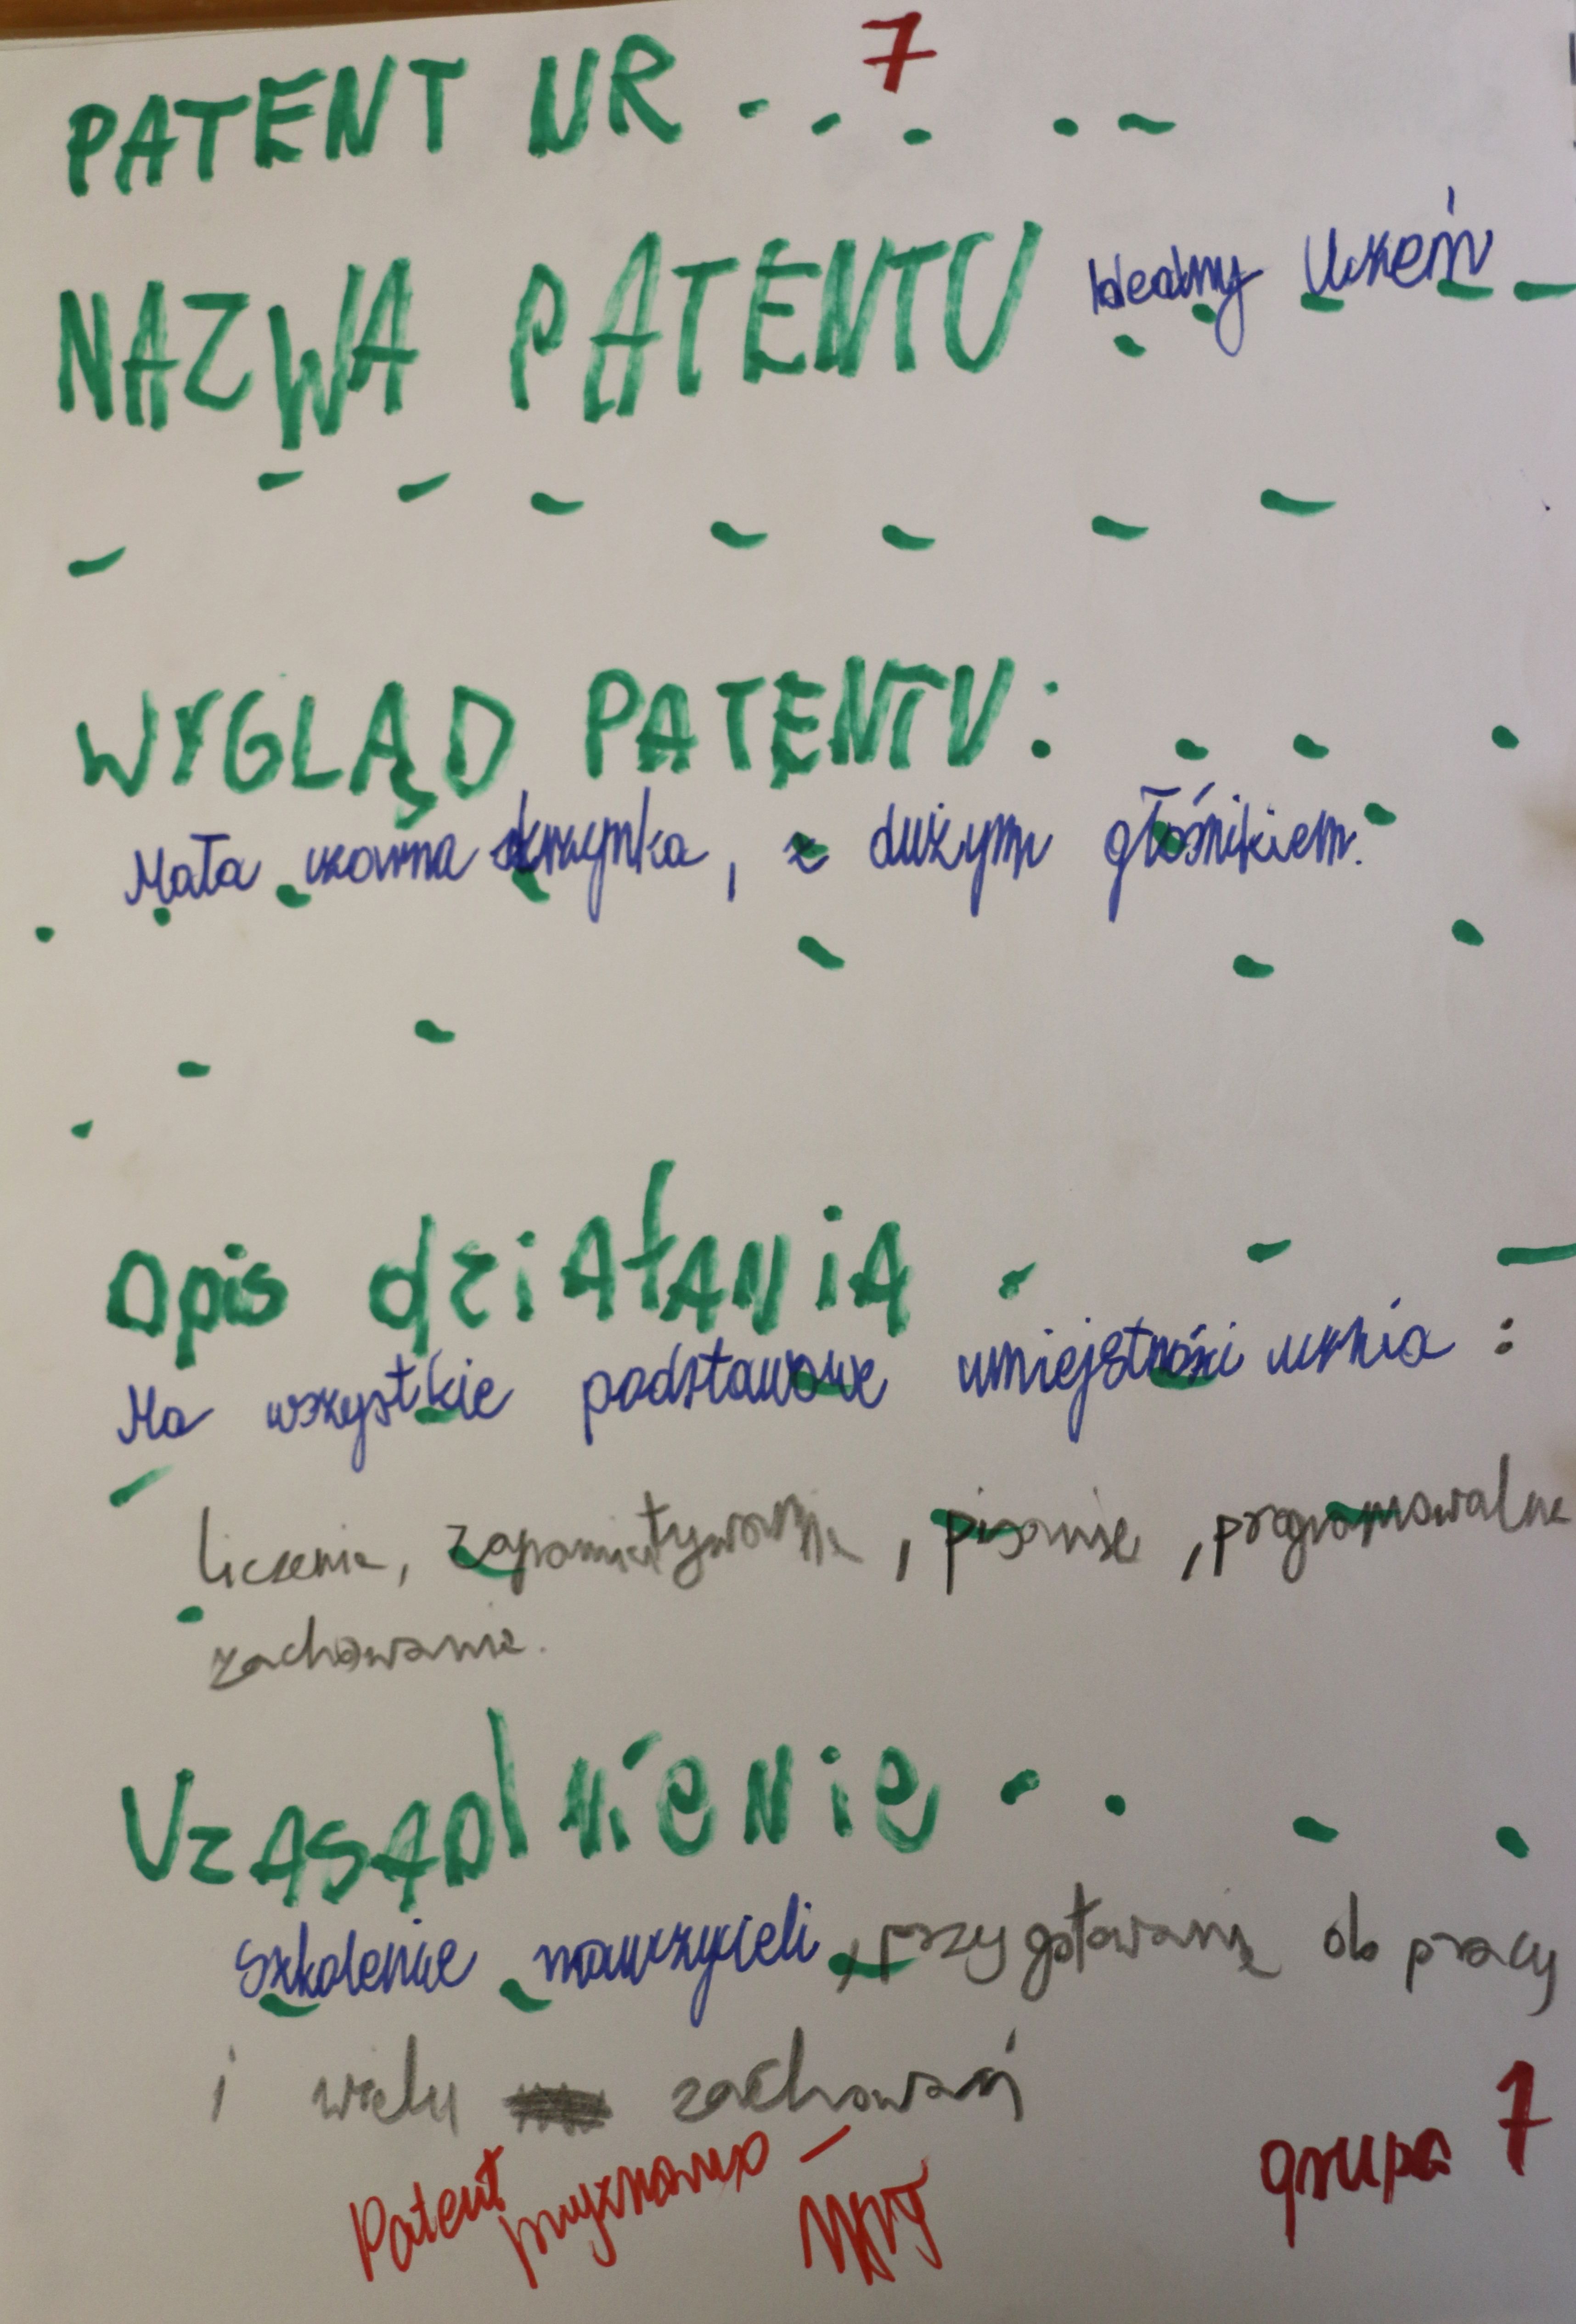 PATENT NR . . . 7 . . .
NAZWA PATENTU Idealny Uczeń
WYGLĄD PATENTU:
Mała czarna skrzynka, z dużym głośnikiem.
Opis działania
Ma wszystkie podstawowe umiejętności ucznia :
liczenie, zapamiętywanie, pisanie, programowalne
zachowanie.
Uzasądnienie
Szkolenie nauczycieli, przygotowanie do pracy
i wielu zachowań
Patent przyznano -
grupa 7